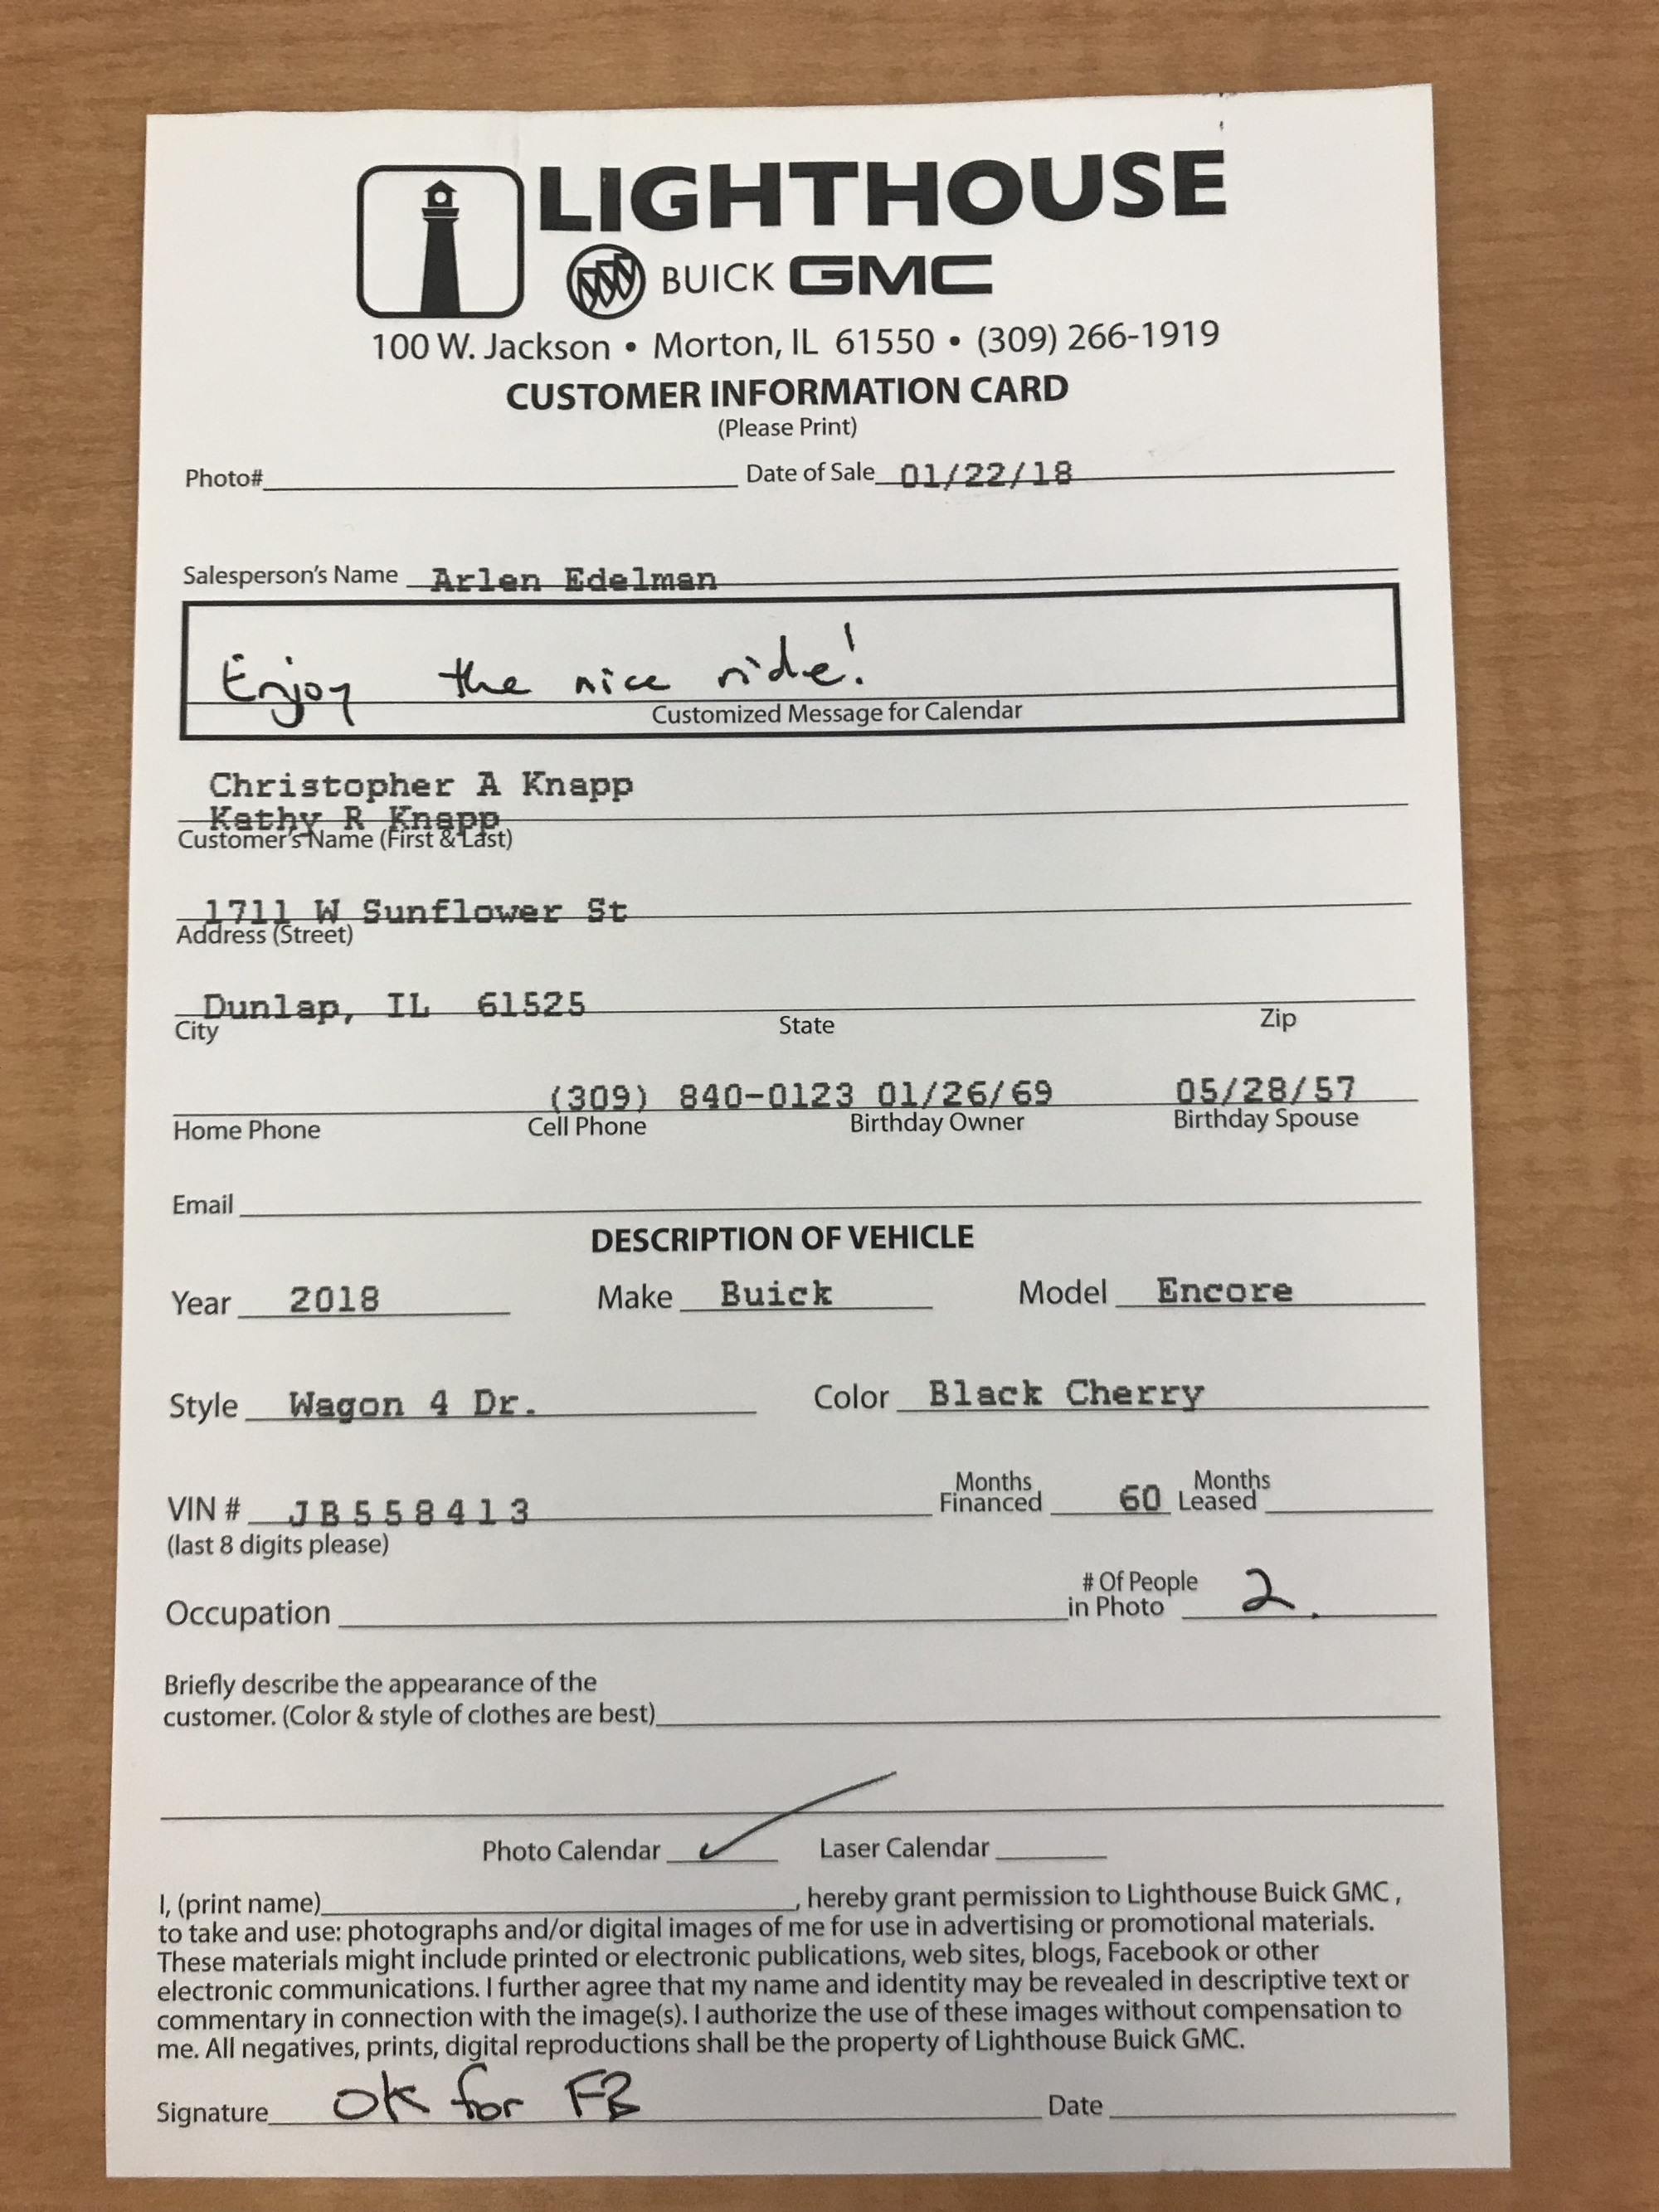 LIGHTHOUSE
BUICK GMC
100 W. Jackson • Morton, IL 61550 • (309) 266-1919
CUSTOMER INFORMATION CARD
(Please Print)
Photo# Date of Sale 01/22/18
Salesperson's Name Arlen Edelman
Enjoy the nice ride!
Customized Message for Calendar
Christopher A Knapp
Kathy R Knapp
Customer's Name (First & Last)
1711 W Sunflower St
Address (Street)
Dunlap, IL 61525
City State Zip
(309) 840-0123 01/26/69 05/28/57
Home Phone Cell Phone Birthday Owner Birthday Spouse
Email
DESCRIPTION OF VEHICLE
Year 2018 Make Buick Model Encore
Style Wagon 4 Dr. Color Black Cherry
VIN # JB558413 Months Financed 60 Months Leased
(last 8 digits please)
Occupation # Of People in Photo 2
Briefly describe the appearance of the
customer. (Color & style of clothes are best)
Photo Calendar ✓ Laser Calendar
I, (print name) , hereby grant permission to Lighthouse Buick GMC ,
to take and use: photographs and/or digital images of me for use in advertising or promotional materials.
These materials might include printed or electronic publications, web sites, blogs, Facebook or other
electronic communications. I further agree that my name and identity may be revealed in descriptive text or
commentary in connection with the image(s). I authorize the use of these images without compensation to
me. All negatives, prints, digital reproductions shall be the property of Lighthouse Buick GMC.
Signature OK for FB Date